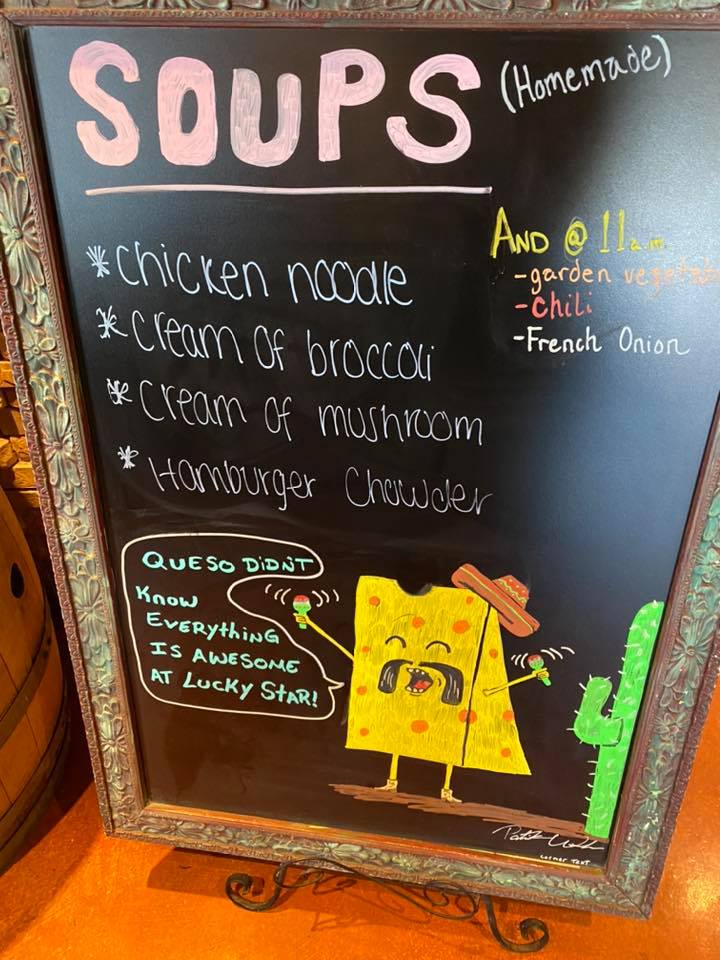 SOUPS (Homemade)
* chicken noodle
* cream of broccoli
* cream of mushroom
* Hamburger Chowder
AND @ 11a.m
-garden
-chili
-French Onion
QUESO DIDN'T
KNOW
EVERYTHING
IS AWESOME
AT LUCKY STAR!